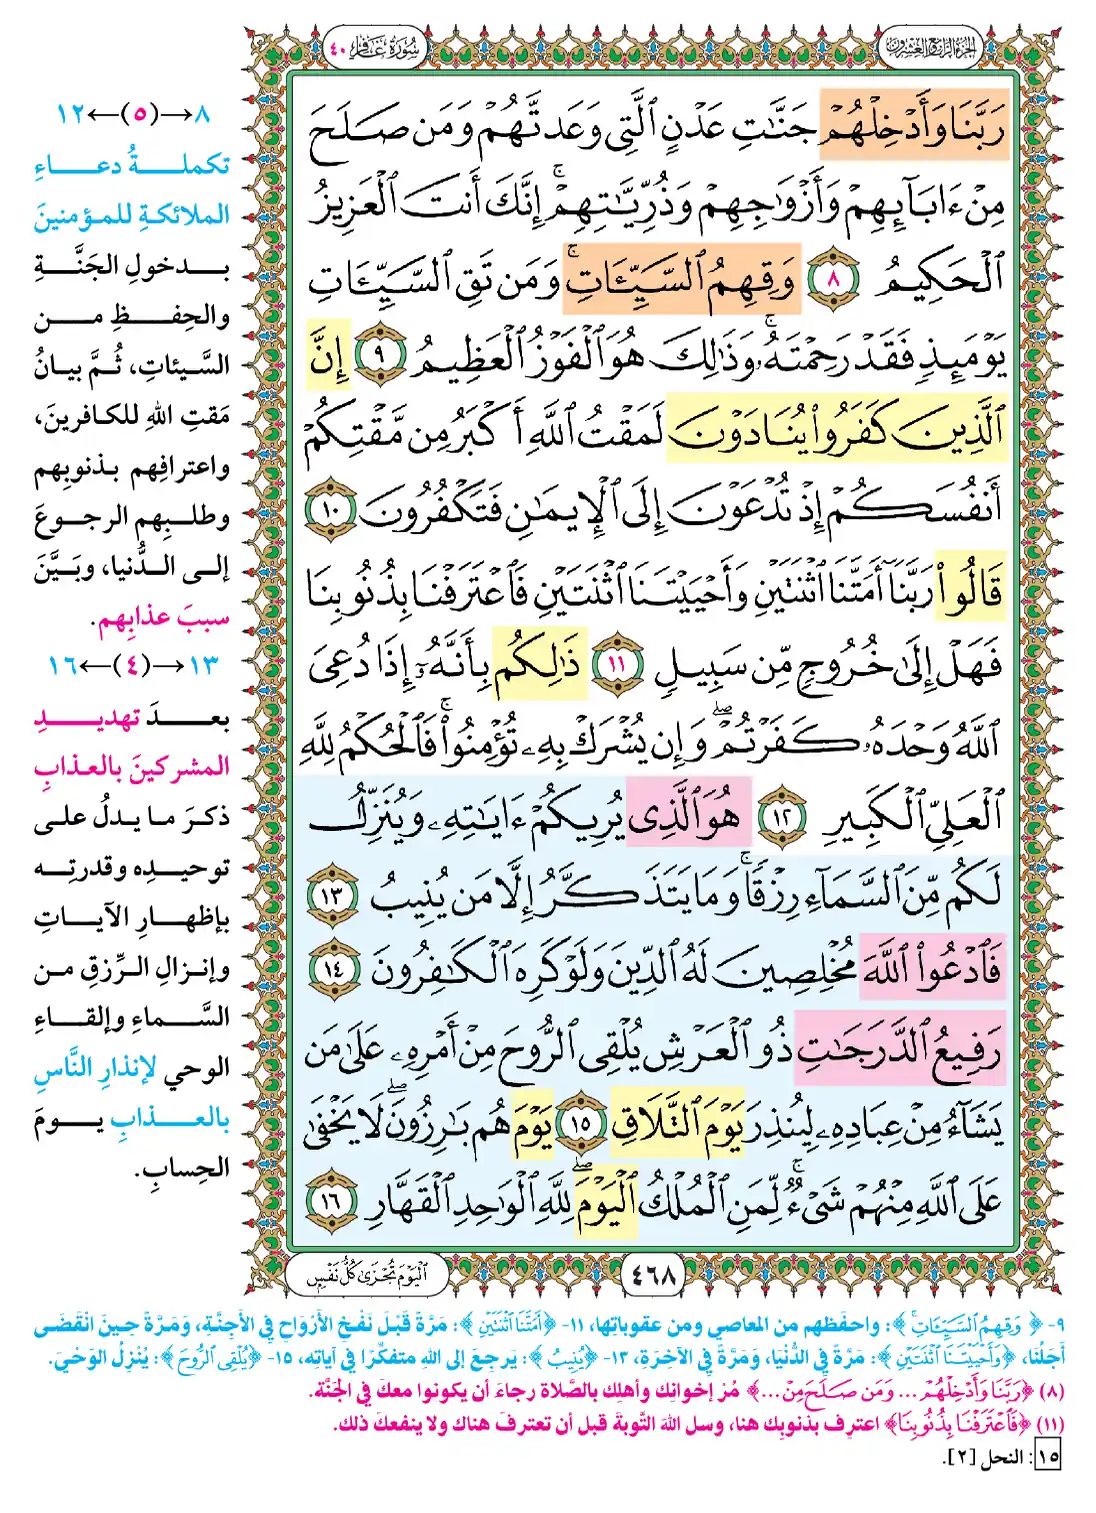 الجزء الرابع والعشرون
سورة غافر ٤٠
رَبَّنَا وَأَدْخِلْهُمْ جَنَّٰتِ عَدْنٍ ٱلَّتِى وَعَدتَّهُمْ وَمَن صَلَحَ
مِنْ ءَابَآئِهِمْ وَأَزْوَٰجِهِمْ وَذُرِّيَّٰتِهِمْ ۚ إِنَّكَ أَنتَ ٱلْعَزِيزُ
ٱلْحَكِيمُ ٨ وَقِهِمُ ٱلسَّيِّـَٔاتِ ۚ وَمَن تَقِ ٱلسَّيِّـَٔاتِ
يَوْمَئِذٍ فَقَدْ رَحِمْتَهُۥ ۚ وَذَٰلِكَ هُوَ ٱلْفَوْزُ ٱلْعَظِيمُ ٩ إِنَّ
ٱلَّذِينَ كَفَرُوا۟ يُنَادَوْنَ لَمَقْتُ ٱللَّهِ أَكْبَرُ مِن مَّقْتِكُمْ
أَنفُسَكُمْ إِذْ تُدْعَوْنَ إِلَى ٱلْإِيمَٰنِ فَتَكْفُرُونَ ١٠
قَالُوا۟ رَبَّنَآ أَمَتَّنَا ٱثْنَتَيْنِ وَأَحْيَيْتَنَا ٱثْنَتَيْنِ فَٱعْتَرَفْنَا بِذُنُوبِنَا
فَهَلْ إِلَىٰ خُرُوجٍ مِّن سَبِيلٍ ١١ ذَٰلِكُم بِأَنَّهُۥٓ إِذَا دُعِىَ
ٱللَّهُ وَحْدَهُۥ كَفَرْتُمْ ۖ وَإِن يُشْرَكْ بِهِۦ تُؤْمِنُوا۟ ۚ فَٱلْحُكْمُ لِلَّهِ
ٱلْعَلِىِّ ٱلْكَبِيرِ ١٢ هُوَ ٱلَّذِى يُرِيكُمْ ءَايَٰتِهِۦ وَيُنَزِّلُ
لَكُم مِّنَ ٱلسَّمَآءِ رِزْقًا ۚ وَمَا يَتَذَكَّرُ إِلَّا مَن يُنِيبُ ١٣
فَٱدْعُوا۟ ٱللَّهَ مُخْلِصِينَ لَهُ ٱلدِّينَ وَلَوْ كَرِهَ ٱلْكَٰفِرُونَ ١٤
رَفِيعُ ٱلدَّرَجَٰتِ ذُو ٱلْعَرْشِ يُلْقِى ٱلرُّوحَ مِنْ أَمْرِهِۦ عَلَىٰ مَن
يَشَآءُ مِنْ عِبَادِهِۦ لِيُنذِرَ يَوْمَ ٱلتَّلَاقِ ١٥ يَوْمَ هُم بَٰرِزُونَ ۖ لَا يَخْفَىٰ
عَلَى ٱللَّهِ مِنْهُمْ شَىْءٌ ۚ لِّمَنِ ٱلْمُلْكُ ٱلْيَوْمَ ۖ لِلَّهِ ٱلْوَٰحِدِ ٱلْقَهَّارِ ١٦
٤٦٨
ٱلْيَوْمَ تُجْزَىٰ كُلُّ نَفْسٍ
٨→(٥)←١٢
تكملةُ دعاءِ
الملائكةِ للمؤمنينَ
بدخولِ الجَنَّةِ
والحِفظِ من
السَّيئاتِ، ثُمَّ بيانُ
مَقتِ اللهِ للكافرينَ،
واعترافِهم بذنوبِهم
وطلبِهم الرجوعَ
إلى الدُّنيا، وبَيَّنَ
سببَ عذابِهم.
١٣→(٤)←١٦
بعدَ تهديدِ
المشركينَ بالعذابِ
ذكرَ ما يدلُ على
توحيدِه وقدرتِه
بإظهارِ الآياتِ
وإنزالِ الرِّزقِ من
السَّماءِ وإلقاءِ
الوحي لإنذارِ النَّاسِ
بالعذابِ يومَ
الحِسابِ.
٩- ﴿وَقِهِمُ ٱلسَّيِّـَٔاتِ ۚ﴾: واحفَظهم من المعاصي ومن عقوباتِها، ١١- ﴿أَمَتَّنَا ٱثْنَتَيْنِ﴾: مَرَّةً قَبْلَ نَفْخِ الأَرْوَاحِ فِي الأَجِنَّةِ، وَمَرَّةً حِينَ انْقَضَى
أَجَلُنَا، ﴿وَأَحْيَيْتَنَا ٱثْنَتَيْنِ﴾: مَرَّةً فِي الدُّنْيَا، وَمَرَّةً فِي الآخِرَةِ، ١٣- ﴿يُنِيبُ﴾: يرجِعُ إلى اللهِ متفكِّرًا في آياتِه، ١٥- ﴿يُلْقِى ٱلرُّوحَ﴾: يُنْزِلُ الوَحْيَ.
(٨) ﴿رَبَّنَا وَأَدْخِلْهُمْ ... وَمَن صَلَحَ مِنْ ...﴾ مُرْ إخوانَك وأهلَك بالصَّلاة رجاءَ أن يكونوا معكَ في الجَنَّة.
(١١) ﴿فَٱعْتَرَفْنَا بِذُنُوبِنَا﴾ اعترِف بذنوبِك هنا، وسل اللهَ التَّوبةَ قبل أن تعترفَ هناك ولا ينفعكَ ذلك.
١٥: النحل [٢].